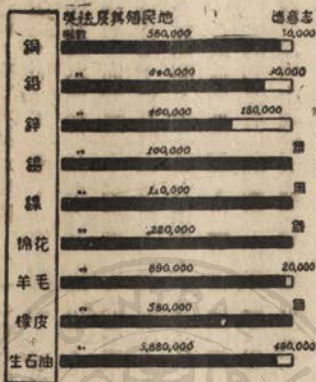 英法及其殖民地 德意志
噸數
銅 560,000 10,000
鉛 〃
鋅 〃 460,000 180,000
錫 〃 100,000 無
鎳 〃 110,000 無
棉花 〃 220,000 無
羊毛 〃 890,000 20,000
橡皮 〃 580,000 無
生石油 〃 5,880,000 490,000